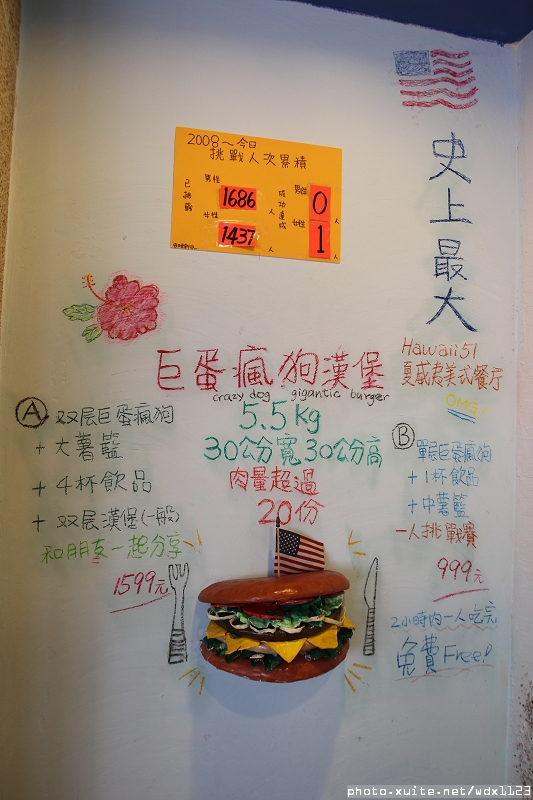 2008～今日
挑戰人次累積
已挑戰
男性
1686
人
女性
1437
人
成功達成
男性
0
人
女性
1
人
史上最大
Hawaii 51
夏威夷美式餐厅
OMG!
巨蛋瘋狗漢堡
crazy dog gigantic burger
5.5kg
30公分寬30公分高
肉量超過
20份
A 双层巨蛋瘋狗
+ 大薯籃
+ 4杯飲品
+ 双层漢堡(一般)
和朋友一起分享
1599元
B 單层巨蛋瘋狗
+ 1杯飲品
+ 中薯籃
一人挑戰賽
999元
2小時內一人吃完
免費 Free!
photo.xuite.net/wdx1123